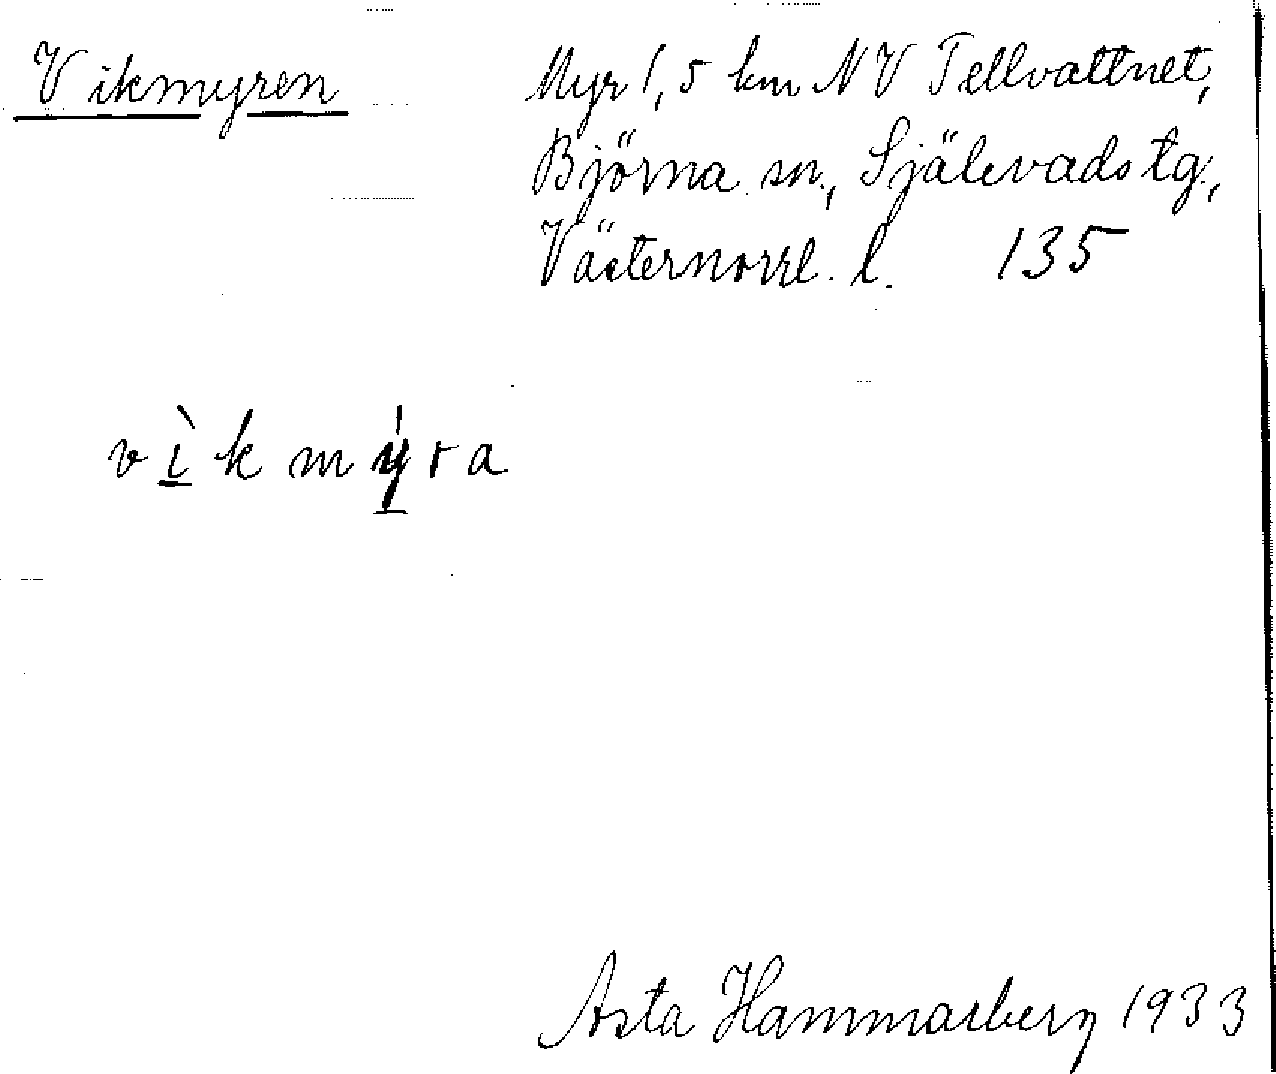 Vikmyren
Myr 1,5 km NV Tellvattnet,
Björna sn., Själevads tg.,
Västernorrl. l. 135
vì̱kmý̱ra
Asta Hammarberg 1933